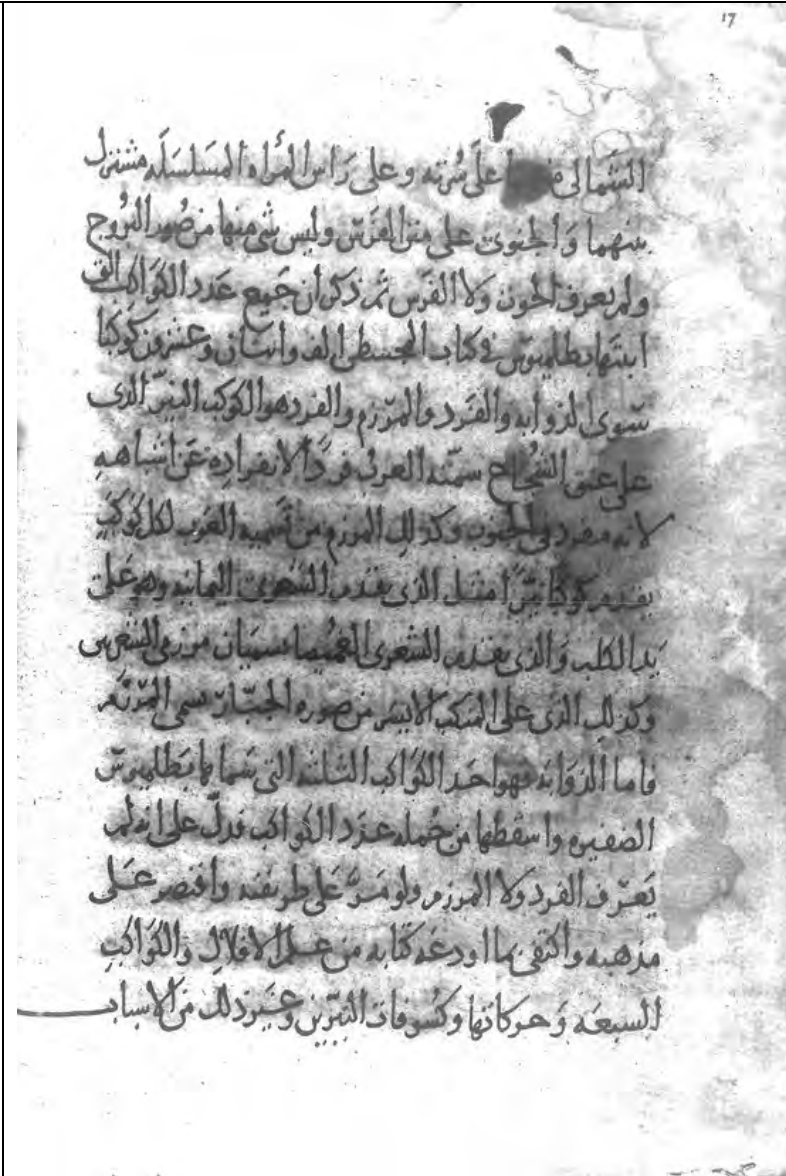 17
الشمالى على سرته وعلى راس المراه المسلسله مشترك
بينهما والجنوبى على متن الفرس وليس شى منها من صور البروج
ولم يعرف الحوت ولا الفرس ثم ذكر ان جميع عدد الكواكب التى
اثبتها بطلميوس فى كتاب المجسطى الف واثنان وعشرون كوكبا
سوى الذوابه والفرد والمرزم والفرد هو الكوكب النير الذى
على عنق الشجاع سمته العرب فردا لانفراده عن اشباهه
لانه مفرد فى الجنوب وكذلك المرزم من تسميه العرب لكل كوكب
يقدم كوكبا نيرا مثل الذى يقدم الشعرى اليمانيه وهو على
يد الكلب والذى يقدم الشعرى الغميصا يسميان مرزمى الشعريين
وكذلك الذى على المنكب الايسر من صوره الجبار يسمى المرزم
فاما الذوابه فهو احد الكواكب الثلثه التى سماها بطلميوس
الضفيره واسقطها من جمله عدد الكواكب فدل على انه لم
يعرف الفرد ولا المرزم ولو مر على طريقته واقتصر على
مذهبه واكتفى بما اودعه كتابه من علم الافلاك والكواكب
السبعه وحركاتها وكسوفات النيرين وغير ذلك من الاسباب